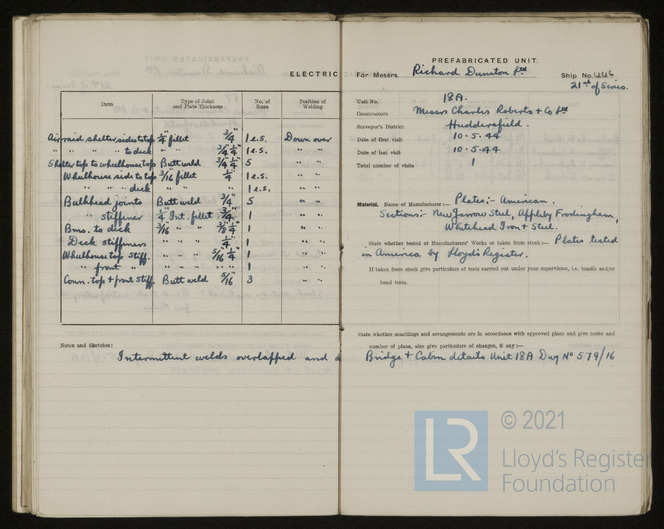 ELECTRIC
Item Type of Joint and Plate Thickness No. of Runs Position of Welding
Air raid shelter, sides to top 1/4" fillet 3/4" 1 e.s. Down over
" " " to deck " " 3/4" 1/4" 1 e.s. " "
Shelter top to wheelhouse top Butt weld 3/4" 1/4" 5 " "
Wheelhouse side to top 3/16" fillet 1/4" 1 e.s. " "
" " " deck " " " 1 e.s. " "
Bulkhead joints Butt weld 3/4" 5 " "
" stiffener 1/4" Int. fillet 3/4" 1 " "
Bms. to deck 3/16" " " 1 " "
Deck stiffeners " " " 1/4" 1 " "
Wheelhouse top stiff. " " " 5/16" 1/4" 1 " "
" front " " " " 1 " "
Conn. top + front stiff. Butt weld 5/16" 3 " "
Notes and Sketches:
Intermittent welds overlapped and
PREFABRICATED UNIT.
For Messrs. Richard Dunston Ltd Ship No. 446
21st of Series.
Unit No. 18A.
Constructors Messrs Charles Roberts + Co Ltd
Surveyor's District Huddersfield.
Date of first visit 10.5.44
Date of last visit 10.5.44
Total number of visits 1
Material. Name of Manufacturer :— Plates:- American.
Sections:- New Jarrow Steel, Appleby Frodingham,
Whitehead Iron + Steel.
State whether tested at Manufacturers' Works or taken from stock :— Plates tested
in America by Lloyd's Register.
If taken from stock give particulars of tests carried out under your supervision, i.e. tensile and/or
bend tests.
State whether scantlings and arrangements are in accordance with approved plans and give name and
number of plans, also give particulars of changes, if any :—
Bridge + Cabin details Unit 18A Drg No 579/16
© 2021
LR
Lloyd's Register
Foundation